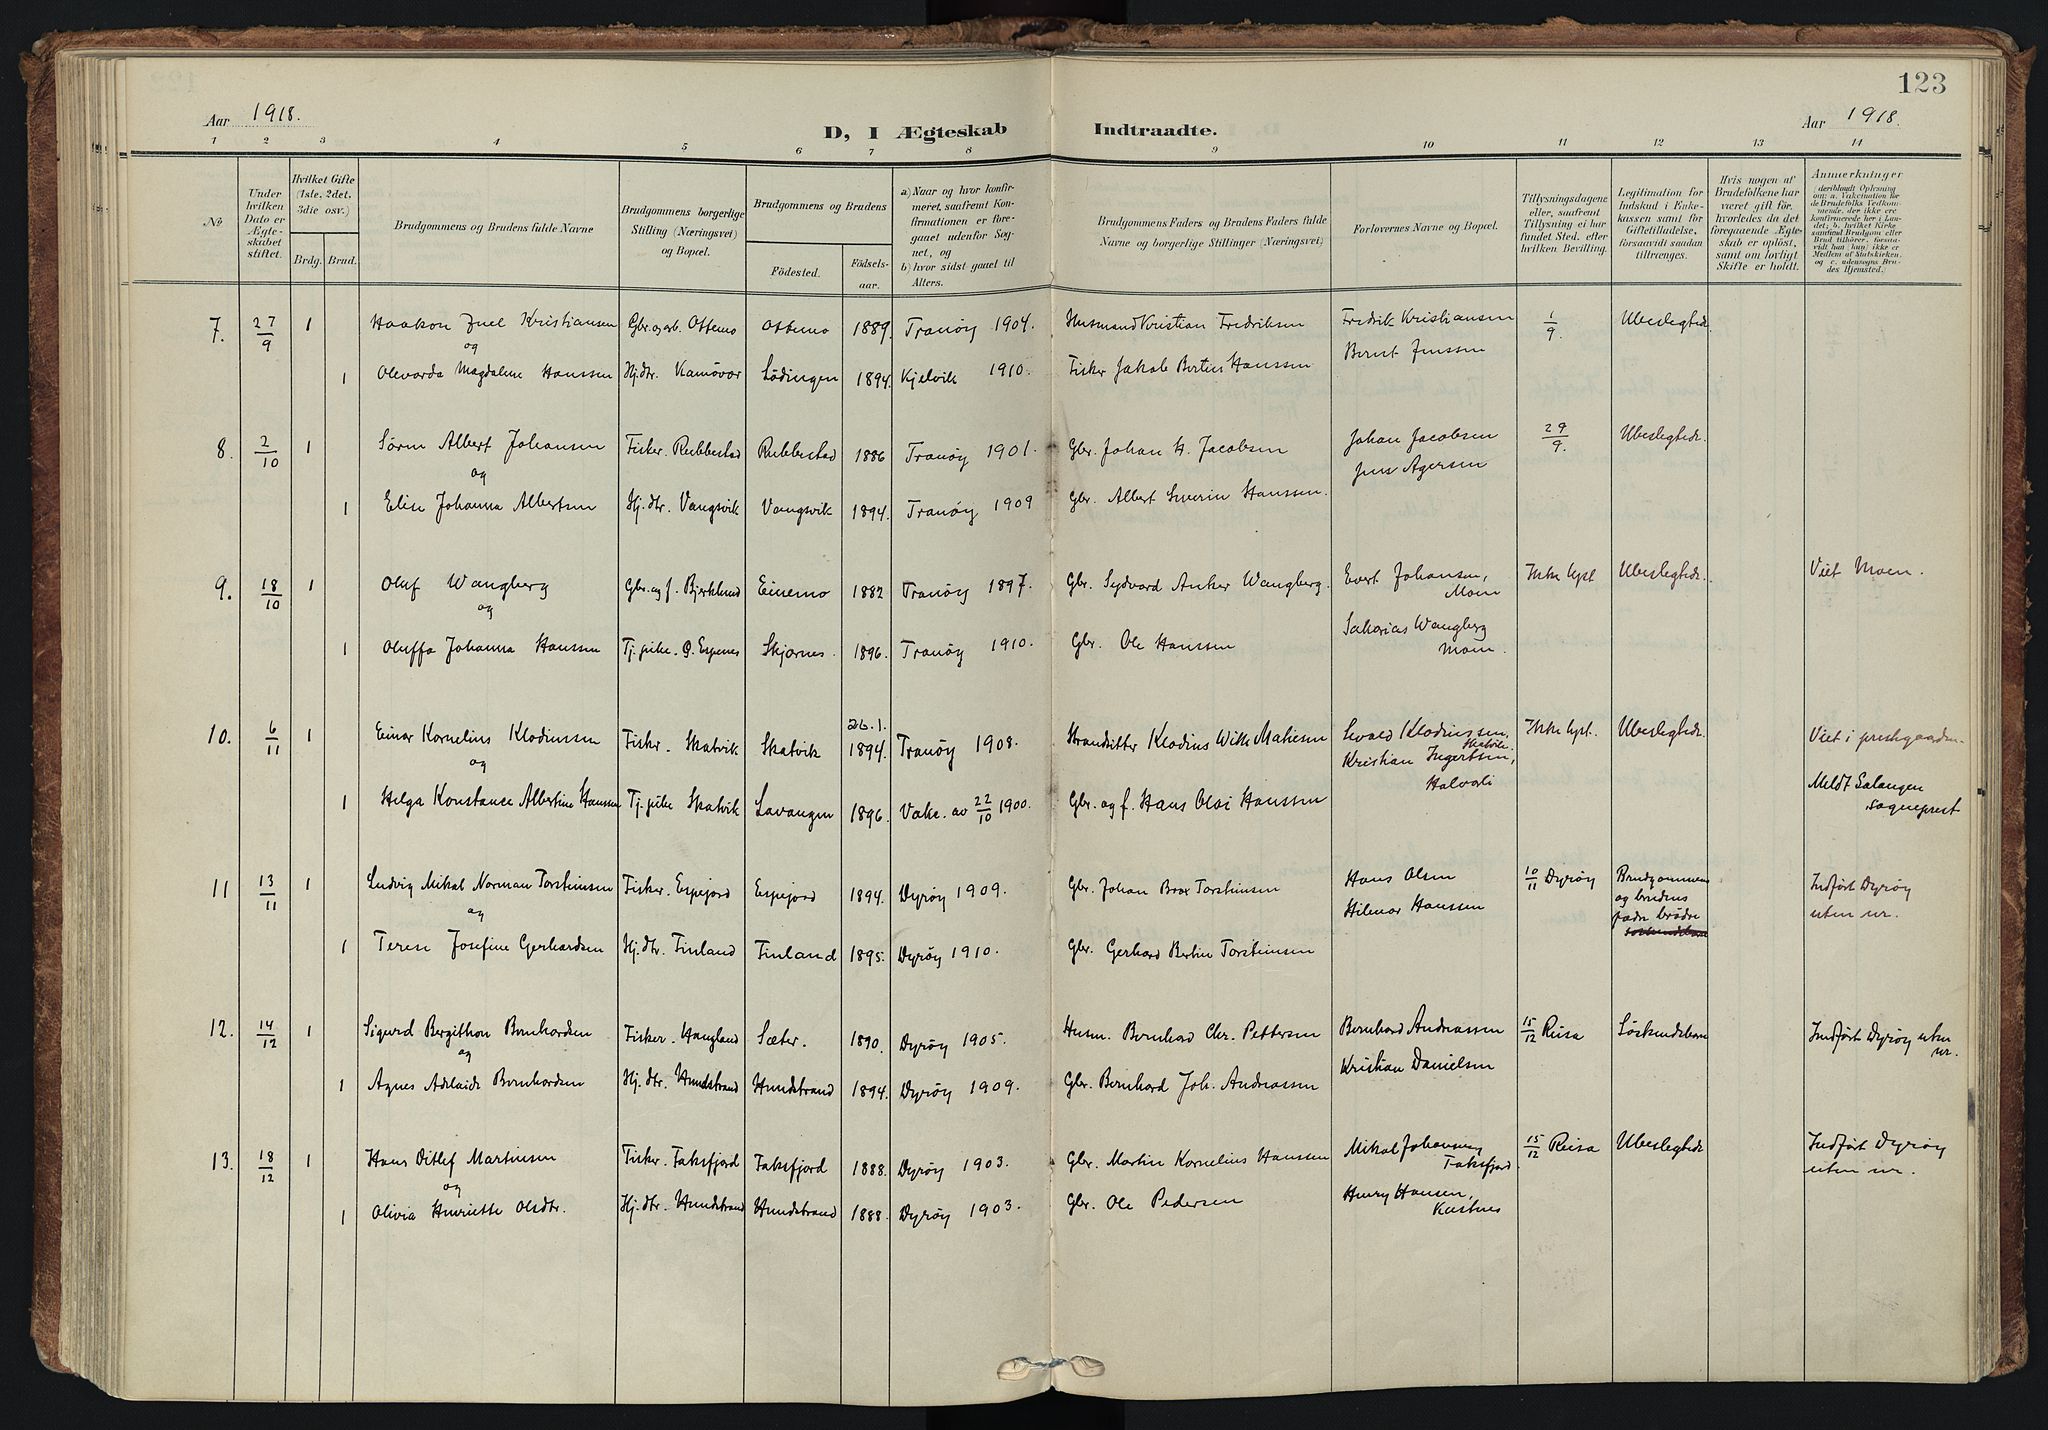 123
Aar 1918.
D, I Ægteskab Indtraadte.
Aar 1918.
1 2 3 4 5 6 7 8 9 10 11 12 13 14
No
Under hvilken Dato er Ægteskabet stiftet.
Hvilket Gifte (1ste, 2det, 3die osv.)
Brdg. Brud.
Brudgommens og Brudens fulde Navne
Brudgommens borgerlige Stilling (Næringsvei) og Bopæl.
Brudgommens og Brudens
Födested. Födsels-aar.
a) Naar og hvor konfirmeret, saafremt Konfirmationen er foregaaet udenfor Sognet, og
b) hvor sidst gaaet til Alters.
Brudgommens Faders og Brudens Faders fulde Navne og borgerlige Stillinger (Næringsvei)
Forlovernes Navne og Bopæl.
Tillysningsdagene eller, saafremt Tillysning ei har fundet Sted, efter hvilken Bevilling.
Legitimation for Indskud i Enkekassen samt for Giftetilladelse, forsaavidt saadan tiltrænges.
Hvis nogen af Brudefolkene har været gift för, hvorledes da det foregaaende Ægteskab er oplöst, samt om lovligt Skifte er holdt.
Anmerkninger
(deriblandt Oplysning om: a. Vakcination for de Brudefolks Vedkommende, der ikke ere konfirmerede her i Landet; b. hvilket Kirkesamfund Brudgom eller Brud tilhörer, forsaavidt han (hun) ikke er Medlem af Statskirken, og c. udensogns Brudes Hjemsted.)
7. 27/9 1 Haakon Juel Kristiansen Gbr. og arb. Ottemo Ottemo 1889. Tranöy 1904. Husmand Kristian Fredriksen Fredrik Kristiansen 1/9. Ubeslegtede.
og Bernt Jenssen
1 Olevarda Magdalene Hanssen Hj.dtr. Kamøvær Lödingen 1894. Kjelvik 1910. Fisker Jakob Bertius Hanssen
8. 2/10 1 Sören Albert Johansen Fisker. Rubbestad Rubbestad 1886 Tranöy 1901. Gbr. Johan H. Jacobsen Johan Jacobsen 29/9. Ubeslegtede.
og Jens Agersen
1 Elise Johanna Albertsen Hj.dtr. Vangsvik Vangsvik 1894. Tranöy 1909 Gbr. Albert Severin Hanssen.
9. 18/10 1 Oluf Wangberg Gbr. og f. Bjerklund Einemo 1882 Tranöy 1897. Gbr. Sydvard Anker Wangberg. Evert Johansen, Moen Ikke lyst Ubeslegtede. Viet Moen.
og Sakarias Wangberg Moen.
1 Oluffa Johanna Hanssen Tj. pike. Espenes Skjærnes. 1896. Tranöy 1910. Gbr. Ole Hanssen
10. 6/11 1 Einar Kornelius Klodiussen Fisker. Skatvik Skatvik 26.1. 1894. Tranöy 1908. Strandsitter Klodius Wilh. Matiesen Sevald Klodiussen, Skatvik. Ikke lyst. Ubeslegtede. Viet i prestegaarden.
og Kristian Ingertsen, Halvarli
1 Helga Konstance Albertine Hanssen Tj. pike Skatvik Lavangen 1896. Vakc. av 22/10 1900. Gbr. og f. Hans Olai Hanssen Meldt Salangen sogneprest
11 13/11 1 Ludvig Mikal Norman Torsteinsen Fisker. Espejord Espejord 1894. Dyröy 1909. Gbr. Johan Brox Torsteinsen Hans Olsen 10/11 Dyröy Brudgommens og brudens fædre brødre Indført Dyröy uten nr.
og Hilmar Hanssen
1 Terese Josefine Gerhardsen Hj.dtr. Finland Finland 1895. Dyröy 1910. Gbr. Gerhard Bertin Torsteinsen
12. 14/12 1 Sigurd Bergithon Bernhardsen Fisker. Haugland Sæter. 1890. Dyröy 1905. Husm. Bernhard Chr. Pettersen Bernhard Andreassen 15/12 Reisa Söskendebarn Indført Dyröy uten nr.
og Kristian Danielsen
1 Agnes Adelaide Bernhardsen Hj.dtr. Hundstrand Hundstrand 1894. Dyröy 1909. Gbr. Bernhard Joh. Andreassen
13. 18/12 1 Hans Ditlef Martinsen Fisker. Faksfjord Faksfjord 1888. Dyröy 1903. Gbr. Martin Kornelius Hanssen Mikal Johansen, Faksfjord 15/12 Reisa Ubeslegtede Indført Dyröy uten nr.
og Henry Hansen, Kastnes
1 Olivia Henriette Olsdtr. Hj.dtr. Hundstrand Hundstrand 1888. Dyröy 1903. Gbr. Ole Pedersen